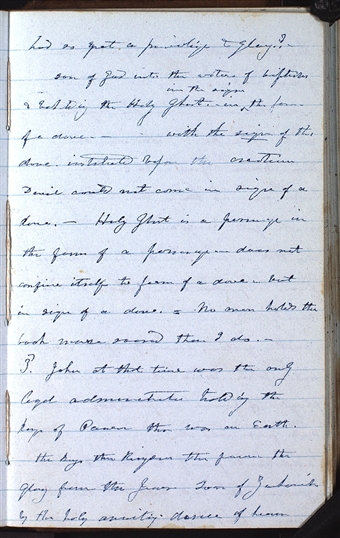 had so great a privilige & glory.?—
son of God into the waters of baptism
in the sign
& had the Holy Ghost — the form
of a dove. — with the sign of the
dove. instituted before the creation
Devil could not come in sign of a
dove. — Holy Ghost is a personage in
the form of a personage — does not
confine itself to form of a dove — but
in sign of a dove. = No man holds the
book more sacred than I do. —
3d. John at that time was the only
legal administrater holdig the
keys of Power there was on Earth.
the keys the Kingdom the power the
glory from the Jews Son of Zachariah
by the holy anoitig decree of heaven